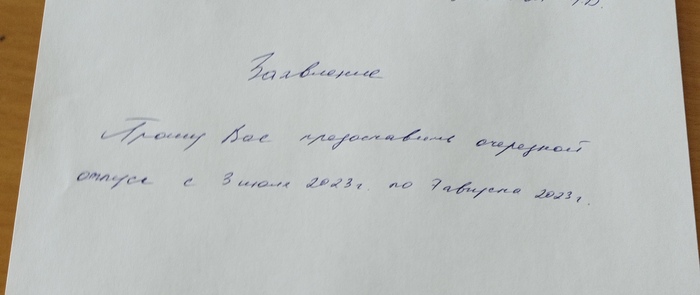 Заявление
Прошу Вас предоставить очередной
отпуск с 3 июля 2023 г. по 7 августа 2023 г.